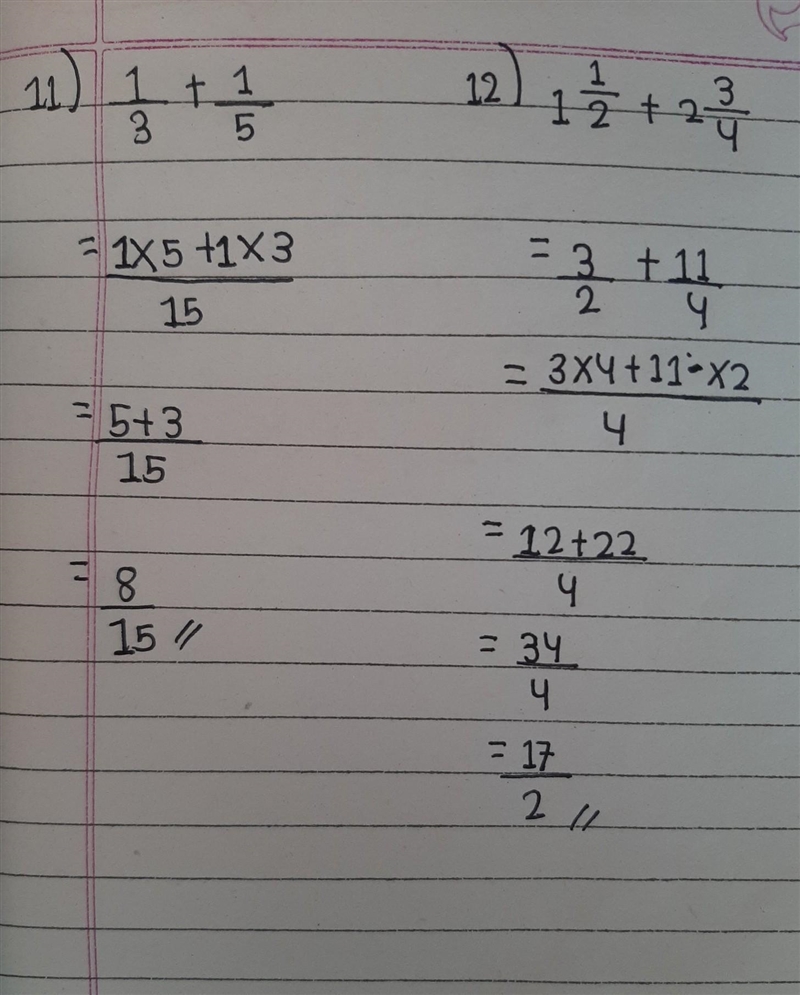 11) 1/3 + 1/5
= (1×5+1×3)/15
= (5+3)/15
= 8/15 //
12) 1 1/2 + 2 3/4
= 3/2 + 11/4
= (3×4+11×2)/4
= (12+22)/4
= 34/4
= 17/2 //